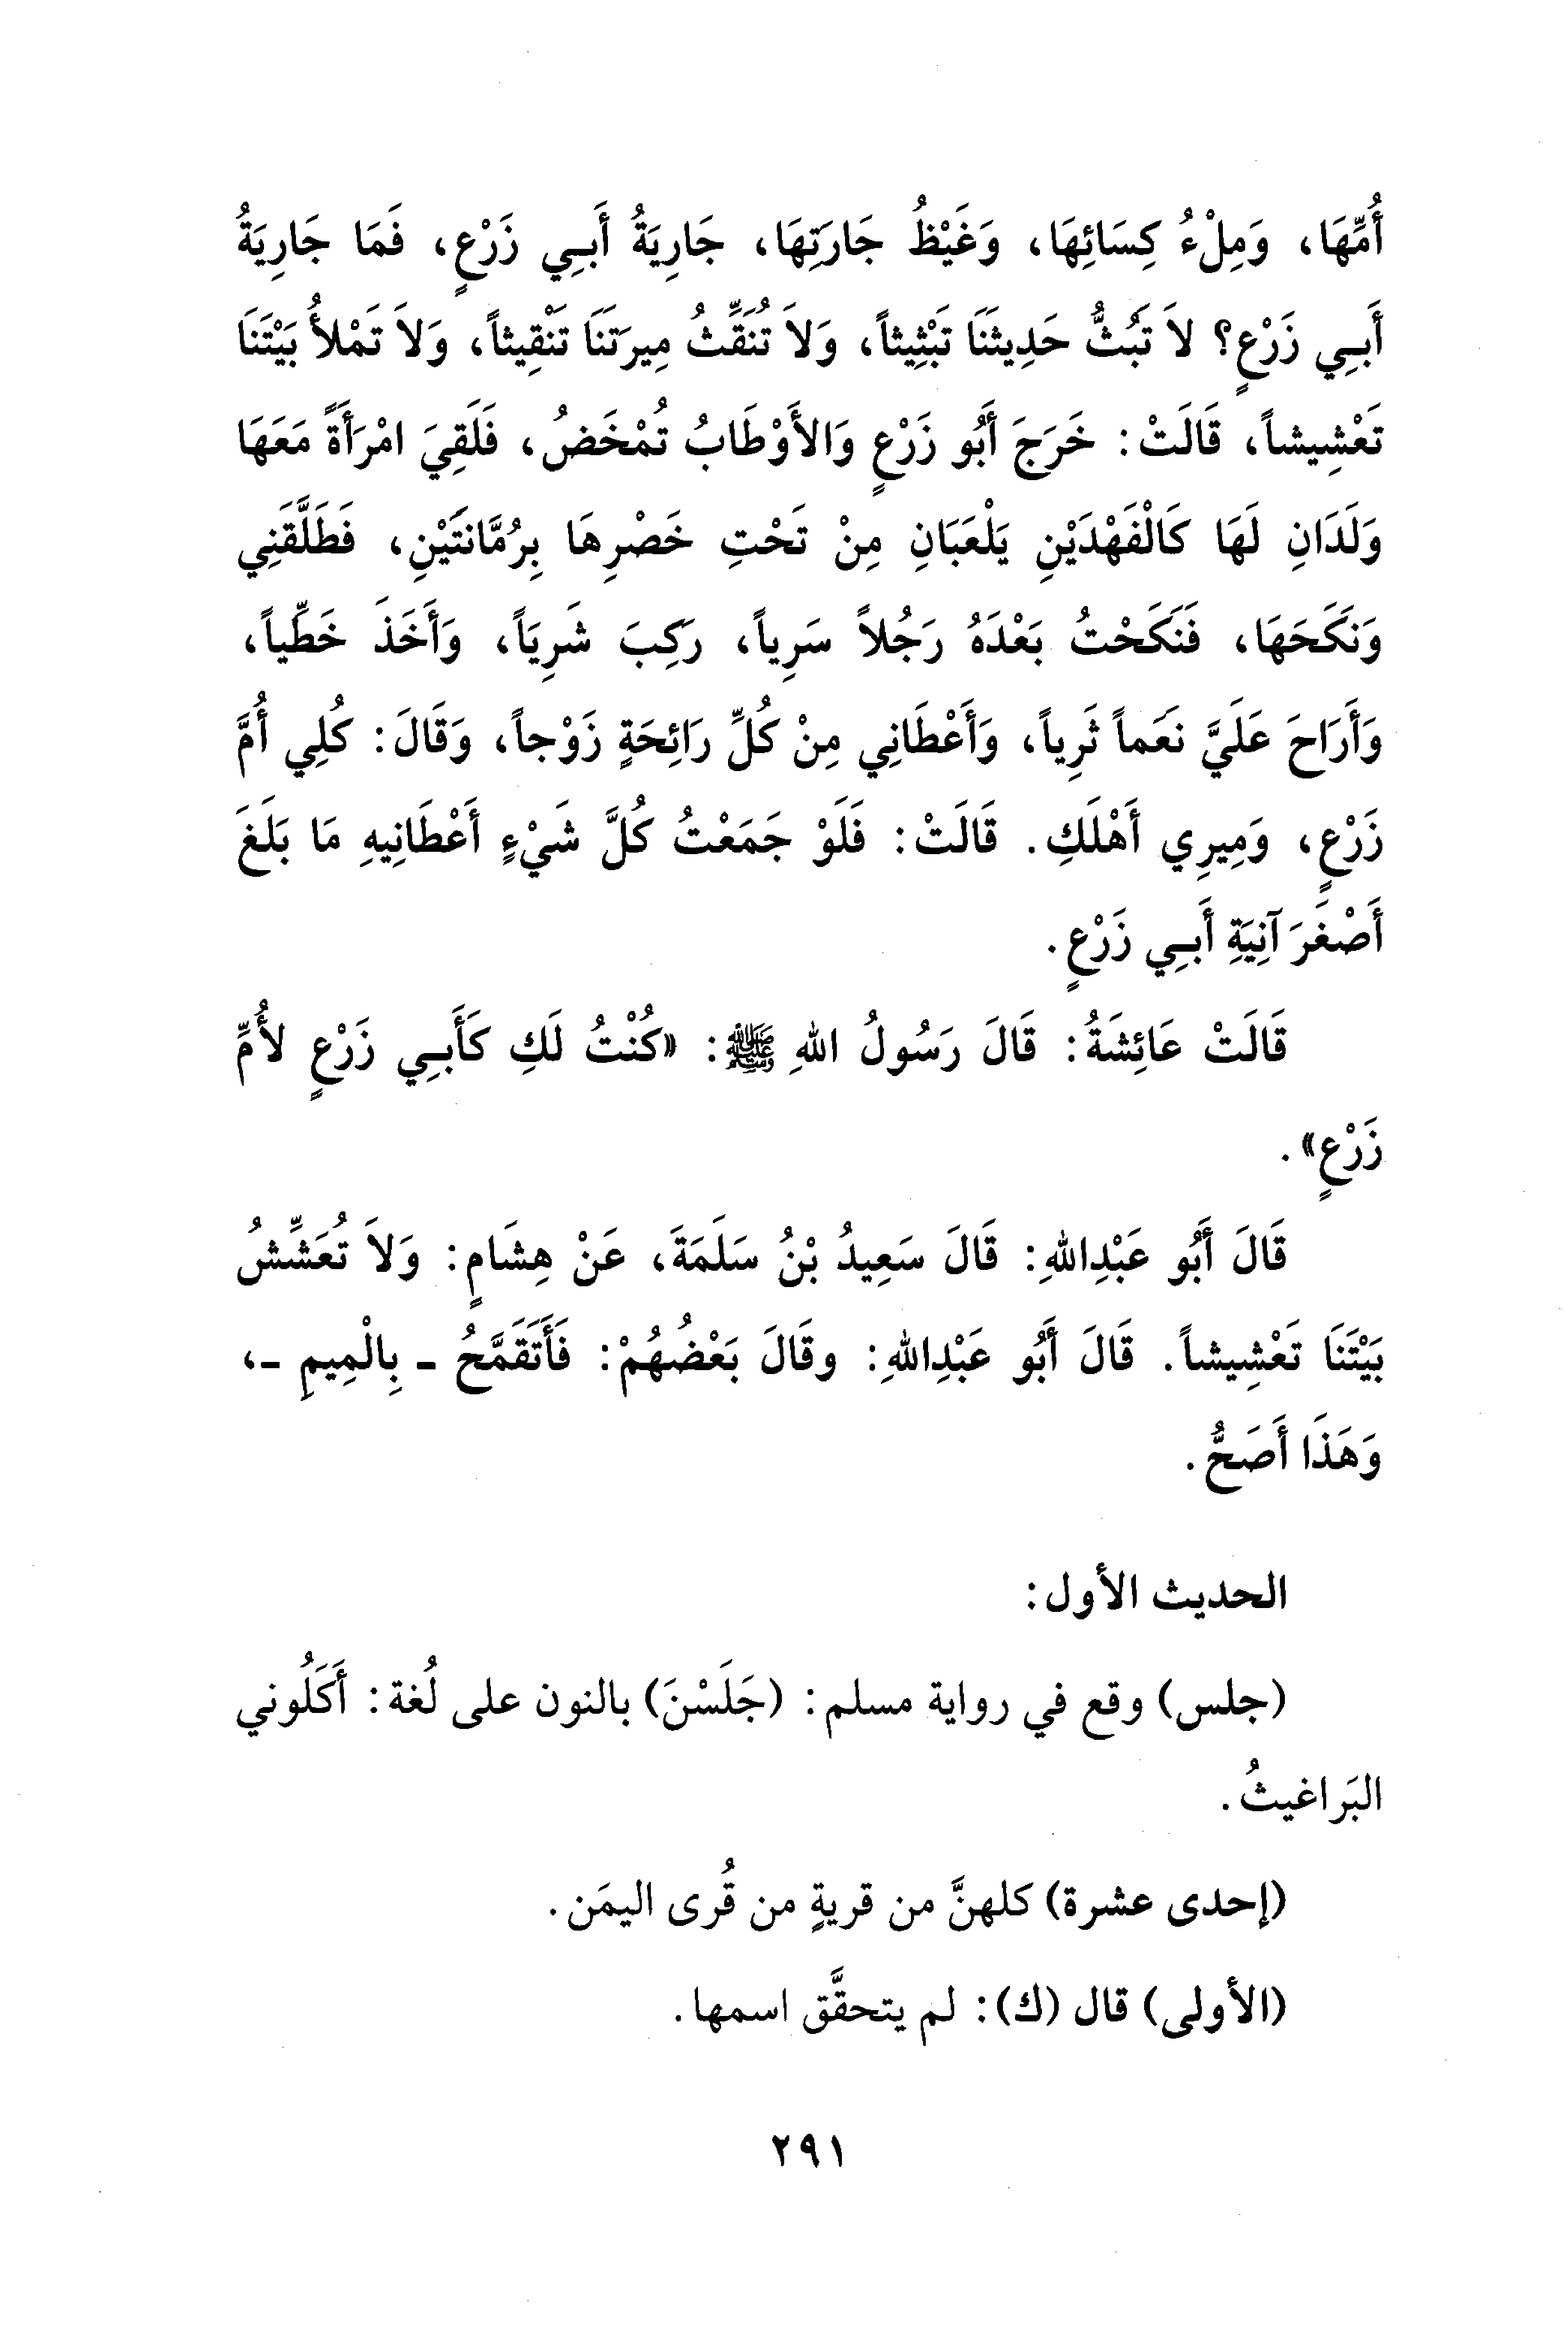 أُمِّهَا، وَمِلْءُ كِسَائِهَا، وَغَيْظُ جَارَتِهَا، جَارِيَةُ أَبِي زَرْعٍ، فَمَا جَارِيَةُ
أَبِي زَرْعٍ؟ لاَ تَبُثُّ حَدِيثَنَا تَبْثِيثاً، وَلاَ تُنَقِّثُ مِيرَتَنَا تَنْقِيثاً، وَلاَ تَمْلأُ بَيْتَنَا
تَعْشِيشاً، قَالَتْ: خَرَجَ أَبُو زَرْعٍ وَالأَوْطَابُ تُمْخَضُ، فَلَقِيَ امْرَأَةً مَعَهَا
وَلَدَانِ لَهَا كَالْفَهْدَيْنِ يَلْعَبَانِ مِنْ تَحْتِ خَصْرِهَا بِرُمَّانَتَيْنِ، فَطَلَّقَنِي
وَنَكَحَهَا، فَنَكَحْتُ بَعْدَهُ رَجُلاً سَرِياً، رَكِبَ شَرِيَاً، وَأَخَذَ خَطِّياً،
وَأَرَاحَ عَلَيَّ نَعَماً ثَرِياً، وَأَعْطَانِي مِنْ كُلِّ رَائِحَةٍ زَوْجاً، وَقَالَ: كُلِي أُمَّ
زَرْعٍ، وَمِيرِي أَهْلَكِ. قَالَتْ: فَلَوْ جَمَعْتُ كُلَّ شَيْءٍ أَعْطَانِيهِ مَا بَلَغَ
أَصْغَرَ آنِيَةِ أَبِي زَرْعٍ.
قَالَتْ عَائِشَةُ: قَالَ رَسُولُ اللهِ ﷺ: «كُنْتُ لَكِ كَأَبِي زَرْعٍ لأُمِّ
زَرْعٍ».
قَالَ أَبُو عَبْدِاللهِ: قَالَ سَعِيدُ بْنُ سَلَمَةَ، عَنْ هِشَامٍ: وَلاَ تُعَشِّشُ
بَيْتَنَا تَعْشِيشاً. قَالَ أَبُو عَبْدِاللهِ: وقَالَ بَعْضُهُمْ: فَأَتَقَمَّحُ - بِالْمِيمِ -،
وَهَذَا أَصَحُّ.
الحديث الأول:
(جلس) وقع في رواية مسلم: (جَلَسْنَ) بالنون على لُغة: أَكَلُوني
البَراغيثُ.
(إحدى عشرة) كلهنَّ من قريةٍ من قُرى اليمَن.
(الأولى) قال (ك): لم يتحقَّق اسمها.
٢٩١